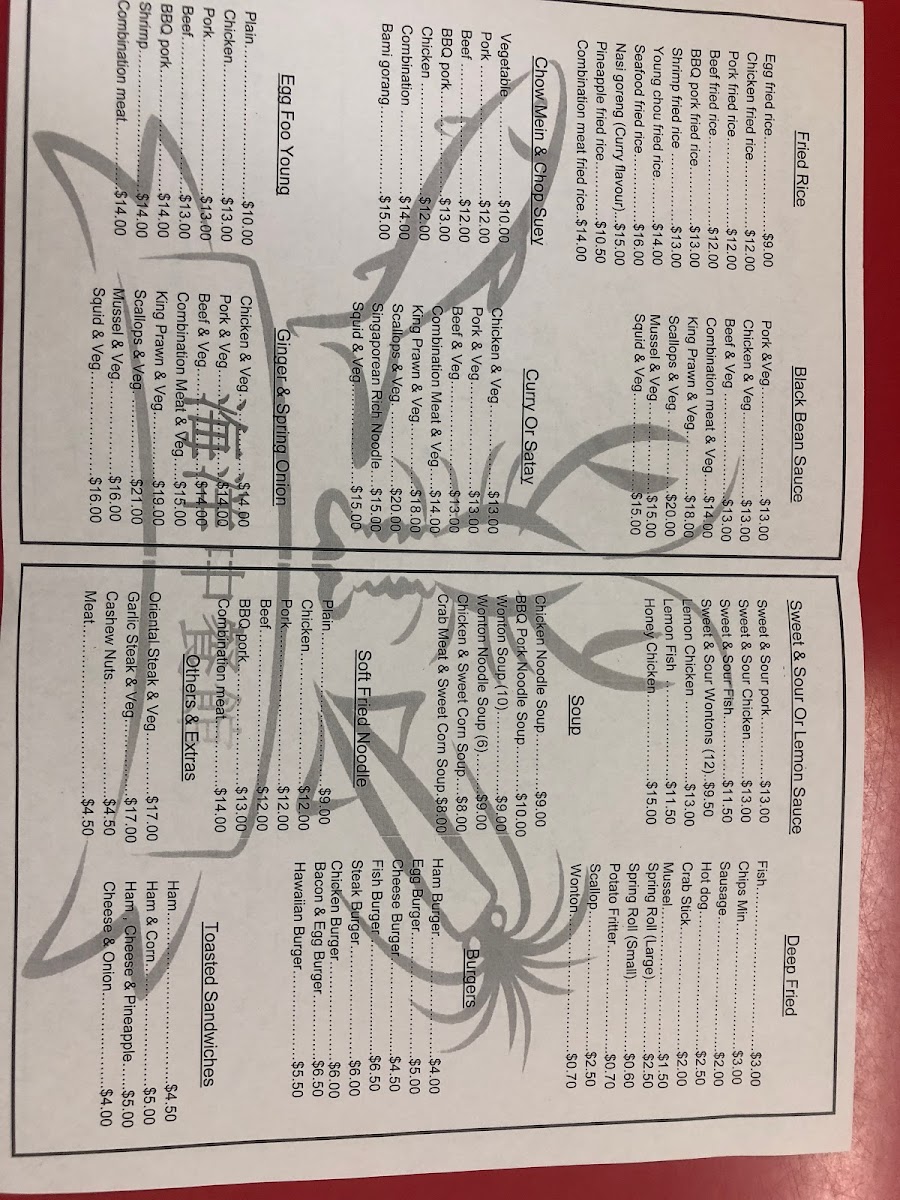 Fried Rice
Egg fried rice............$9.00
Chicken fried rice........$12.00
Pork fried rice...........$12.00
Beef fried rice...........$12.00
BBQ pork fried rice.......$13.00
Shrimp fried rice ........$13.00
Young chou fried rice.....$14.00
Seafood fried rice........$16.00
Nasi goreng (Curry flavour)...$15.00
Pineapple fried rice......$10.50
Combination meat fried rice...$14.00
Chow Mein & Chop Suey
Vegetable.................$10.00
Pork .....................$12.00
Beef .....................$12.00
BBQ pork .................$13.00
Chicken ..................$12.00
Combination ..............$14.00
Bami gorang...............$15.00
Egg Foo Young
Plain.....................$10.00
Chicken...................$13.00
Pork......................$13.00
Beef......................$13.00
BBQ pork..................$14.00
Shrimp....................$14.00
Combination meat..........$14.00
Black Bean Sauce
Pork &Veg.................$13.00
Chicken & Veg.............$13.00
Beef & Veg................$13.00
Combination meat & Veg....$14.00
King Prawn & Veg..........$18.00
Scallops & Veg............$20.00
Mussel & Veg..............$15.00
Squid & Veg...............$15.00
Curry Or Satay
Chicken & Veg.............$13.00
Pork & Veg................$13.00
Beef & Veg................$13.00
Combination Meat & Veg....$14.00
King Prawn & Veg..........$18.00
Scallops & Veg............$20.00
Singaporean Rich Noodle...$15.00
Squid & Veg...............$15.00
Ginger & Spring Onion
Chicken & Veg.............$14.00
Pork & Veg................$14.00
Beef & Veg................$14.00
Combination Meat & Veg....$15.00
King Prawn & Veg..........$19.00
Scallops & Veg............$21.00
Mussel & Veg..............$16.00
Squid & Veg...............$16.00
海洋中餐館
Sweet & Sour Or Lemon Sauce
Sweet & Sour pork.........$13.00
Sweet & Sour Chicken......$13.00
Sweet & Sour Fish.........$11.50
Sweet & Sour Wontons (12)..$9.50
Lemon Chicken ............$13.00
Lemon Fish ...............$11.50
Honey Chicken.............$15.00
Soup
Chicken Noodle Soup.......$9.00
BBQ Pork Noodle Soup......$10.00
Wonton Soup (10)..........$9.00
Wonton Noodle Soup (6)....$9.00
Chicken & Sweet Corn Soup....$8.00
Crab Meat & Sweet Corn Soup.$8.00
Soft Fried Noodle
Plain.....................$9.00
Chicken...................$12.00
Pork......................$12.00
Beef......................$12.00
BBQ pork..................$13.00
Combination meat..........$14.00
Others & Extras
Oriental Steak & Veg......$17.00
Garlic Steak & Veg........$17.00
Cashew Nuts...............$4.50
Meat......................$4.50
Deep Fried
Fish......................$3.00
Chips Min.................$3.00
Sausage...................$2.00
Hot dog...................$2.50
Crab Stick................$2.00
Mussel....................$1.50
Spring Roll (Large).......$2.50
Spring Roll (Small).......$0.60
Potato Fritter............$0.70
Scallop...................$2.50
Wonton....................$0.70
Burgers
Ham Burger................$4.00
Egg Burger................$5.00
Cheese Burger ............$4.50
Fish Burger...............$6.50
Steak Burger..............$6.00
Chicken Burger............$6.00
Bacon & Egg Burger........$6.50
Hawaiian Burger...........$5.50
Toasted Sandwiches
Ham.......................$4.50
Ham & Corn................$5.00
Ham , Cheese & Pineapple.....$5.00
Cheese & Onion............$4.00